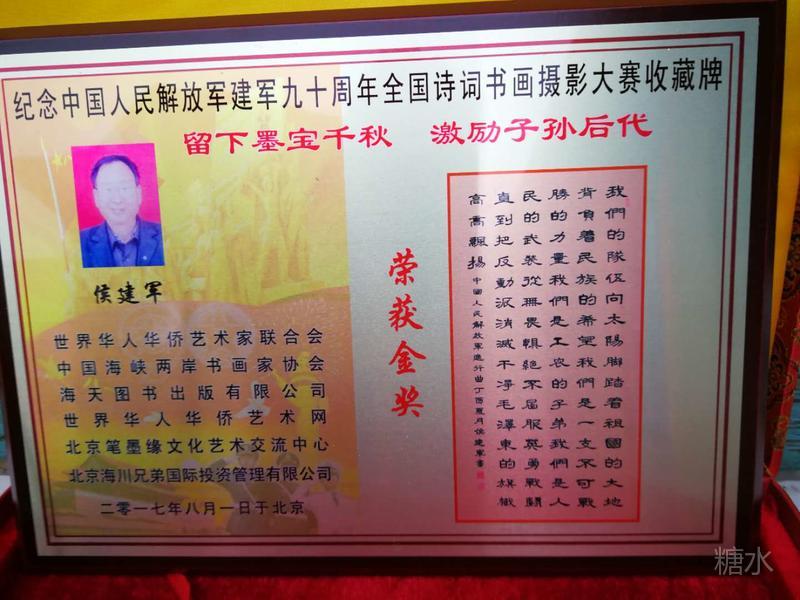 纪念中国人民解放军建军九十周年全国诗词书画摄影大赛收藏牌
留下墨宝千秋 激励子孙后代
侯建军
世界华人华侨艺术家联合会
中国海峡两岸书画家协会
海天图书出版有限公司
世界华人华侨艺术网
北京笔墨缘文化艺术交流中心
北京海川兄弟国际投资管理有限公司
二零一七年八月一日于北京
荣获金奖
我們的隊伍向太陽腳踏着祖國的大地
背負着民族的希望我們是一支不可戰
勝的力量我們是工农的子弟我們是人
民的武裝從無畏懼絕不屈服英勇戰鬭
直到把反動派消滅干净毛澤東的旗幟
高高飄揚 中國人民解放軍進行曲丁酉夏月侯建軍書
糖水